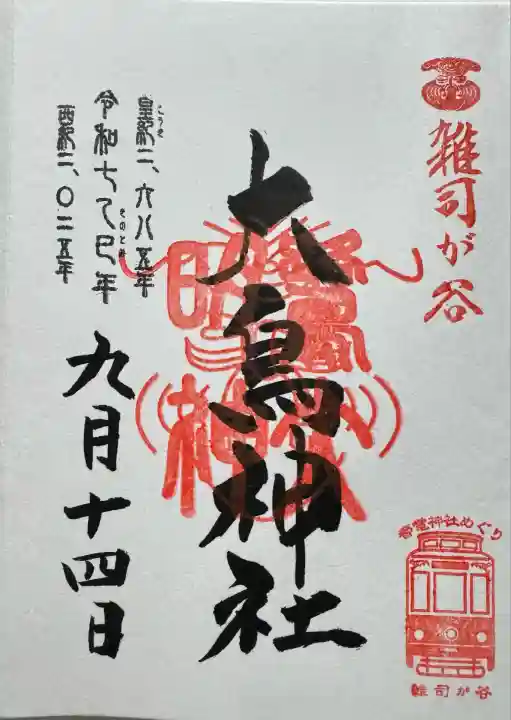 雑司が谷
大鳥神社
皇紀二、六八五年
こうき
令和七乙巳年
きのとみ
西紀二、〇二五年
九月十四日
神社めぐり
雑司が谷